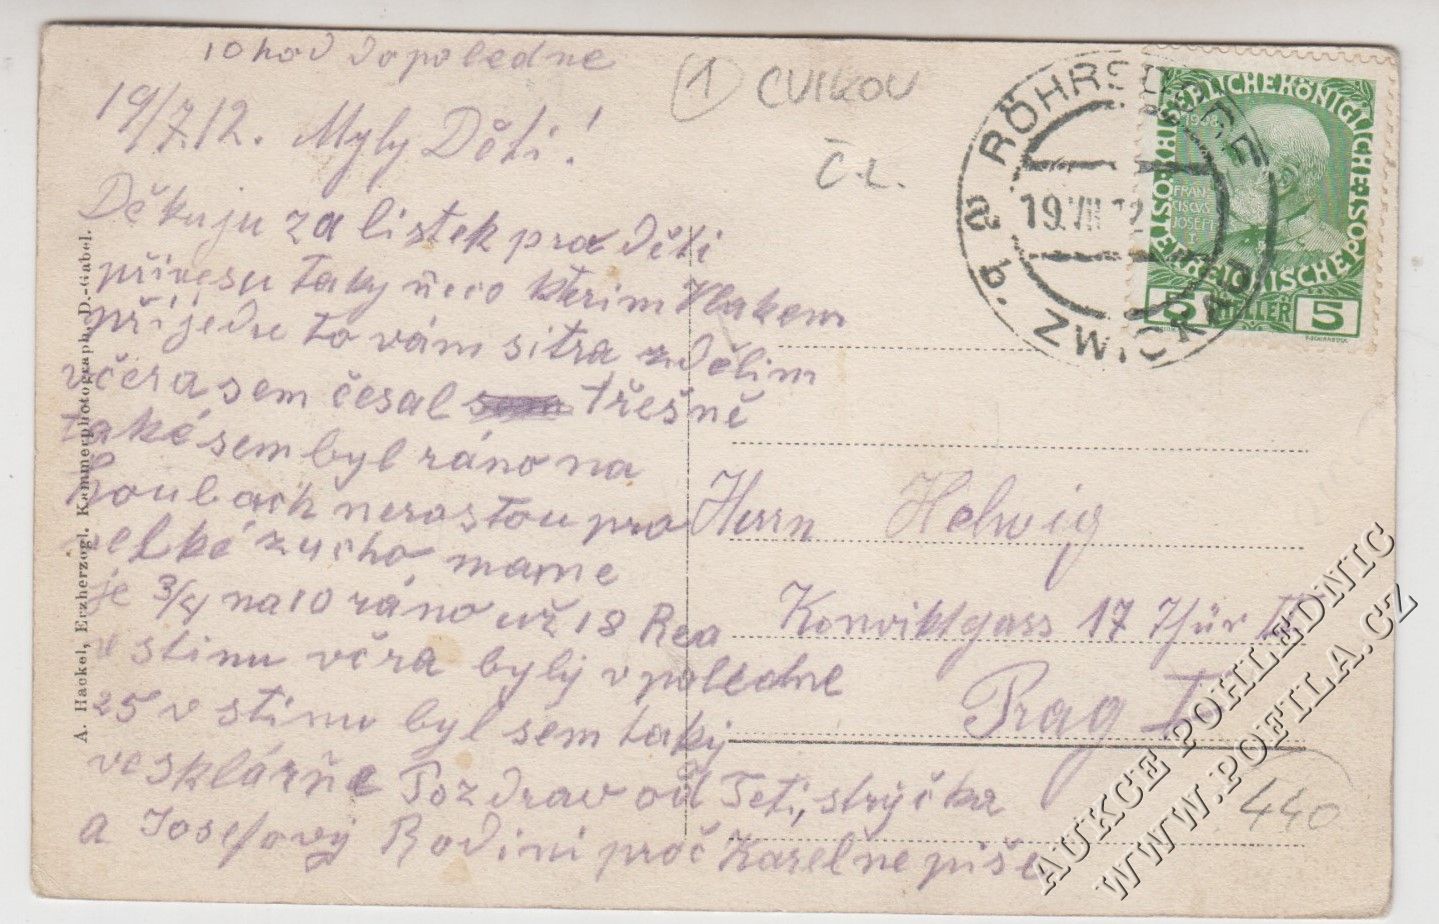 10 hod dopoledne
19/7.12. Myly Děti!
Děkuju za listek pro děti
přivesu taky ňeco kterim Vlakem
přijedu to vám sitra zdělim
včera sem česal třešně
také sem byl ráno na
houbach nerostou pro
velké zucho mame
je 3/4 na 10 ráno už 18 Rea
v stinu včra byly v poledne
25 v stinu byl sem taky
ve sklárňe Pozdrav od Teti, strýčka
a Josefovy Rodini proč Karel ne piše
A. Hackel, Erzherzogl. Kammerphotograph, D.-Gabel.
1 CVIKOV
Č.L.
RÖHRSDORF
b. ZWICKAU
19.VII.12
KAISERLICHE KÖNIGLICHE
ÖSTERREICHISCHE POST
1908
FRANCISCVS JOSEPH I
5 HELLER 5
Herrn Helwig
Konviktgass 17 Thür
Prag I
440
AUKCE POHLEDNIC
WWW.POFILA.CZ